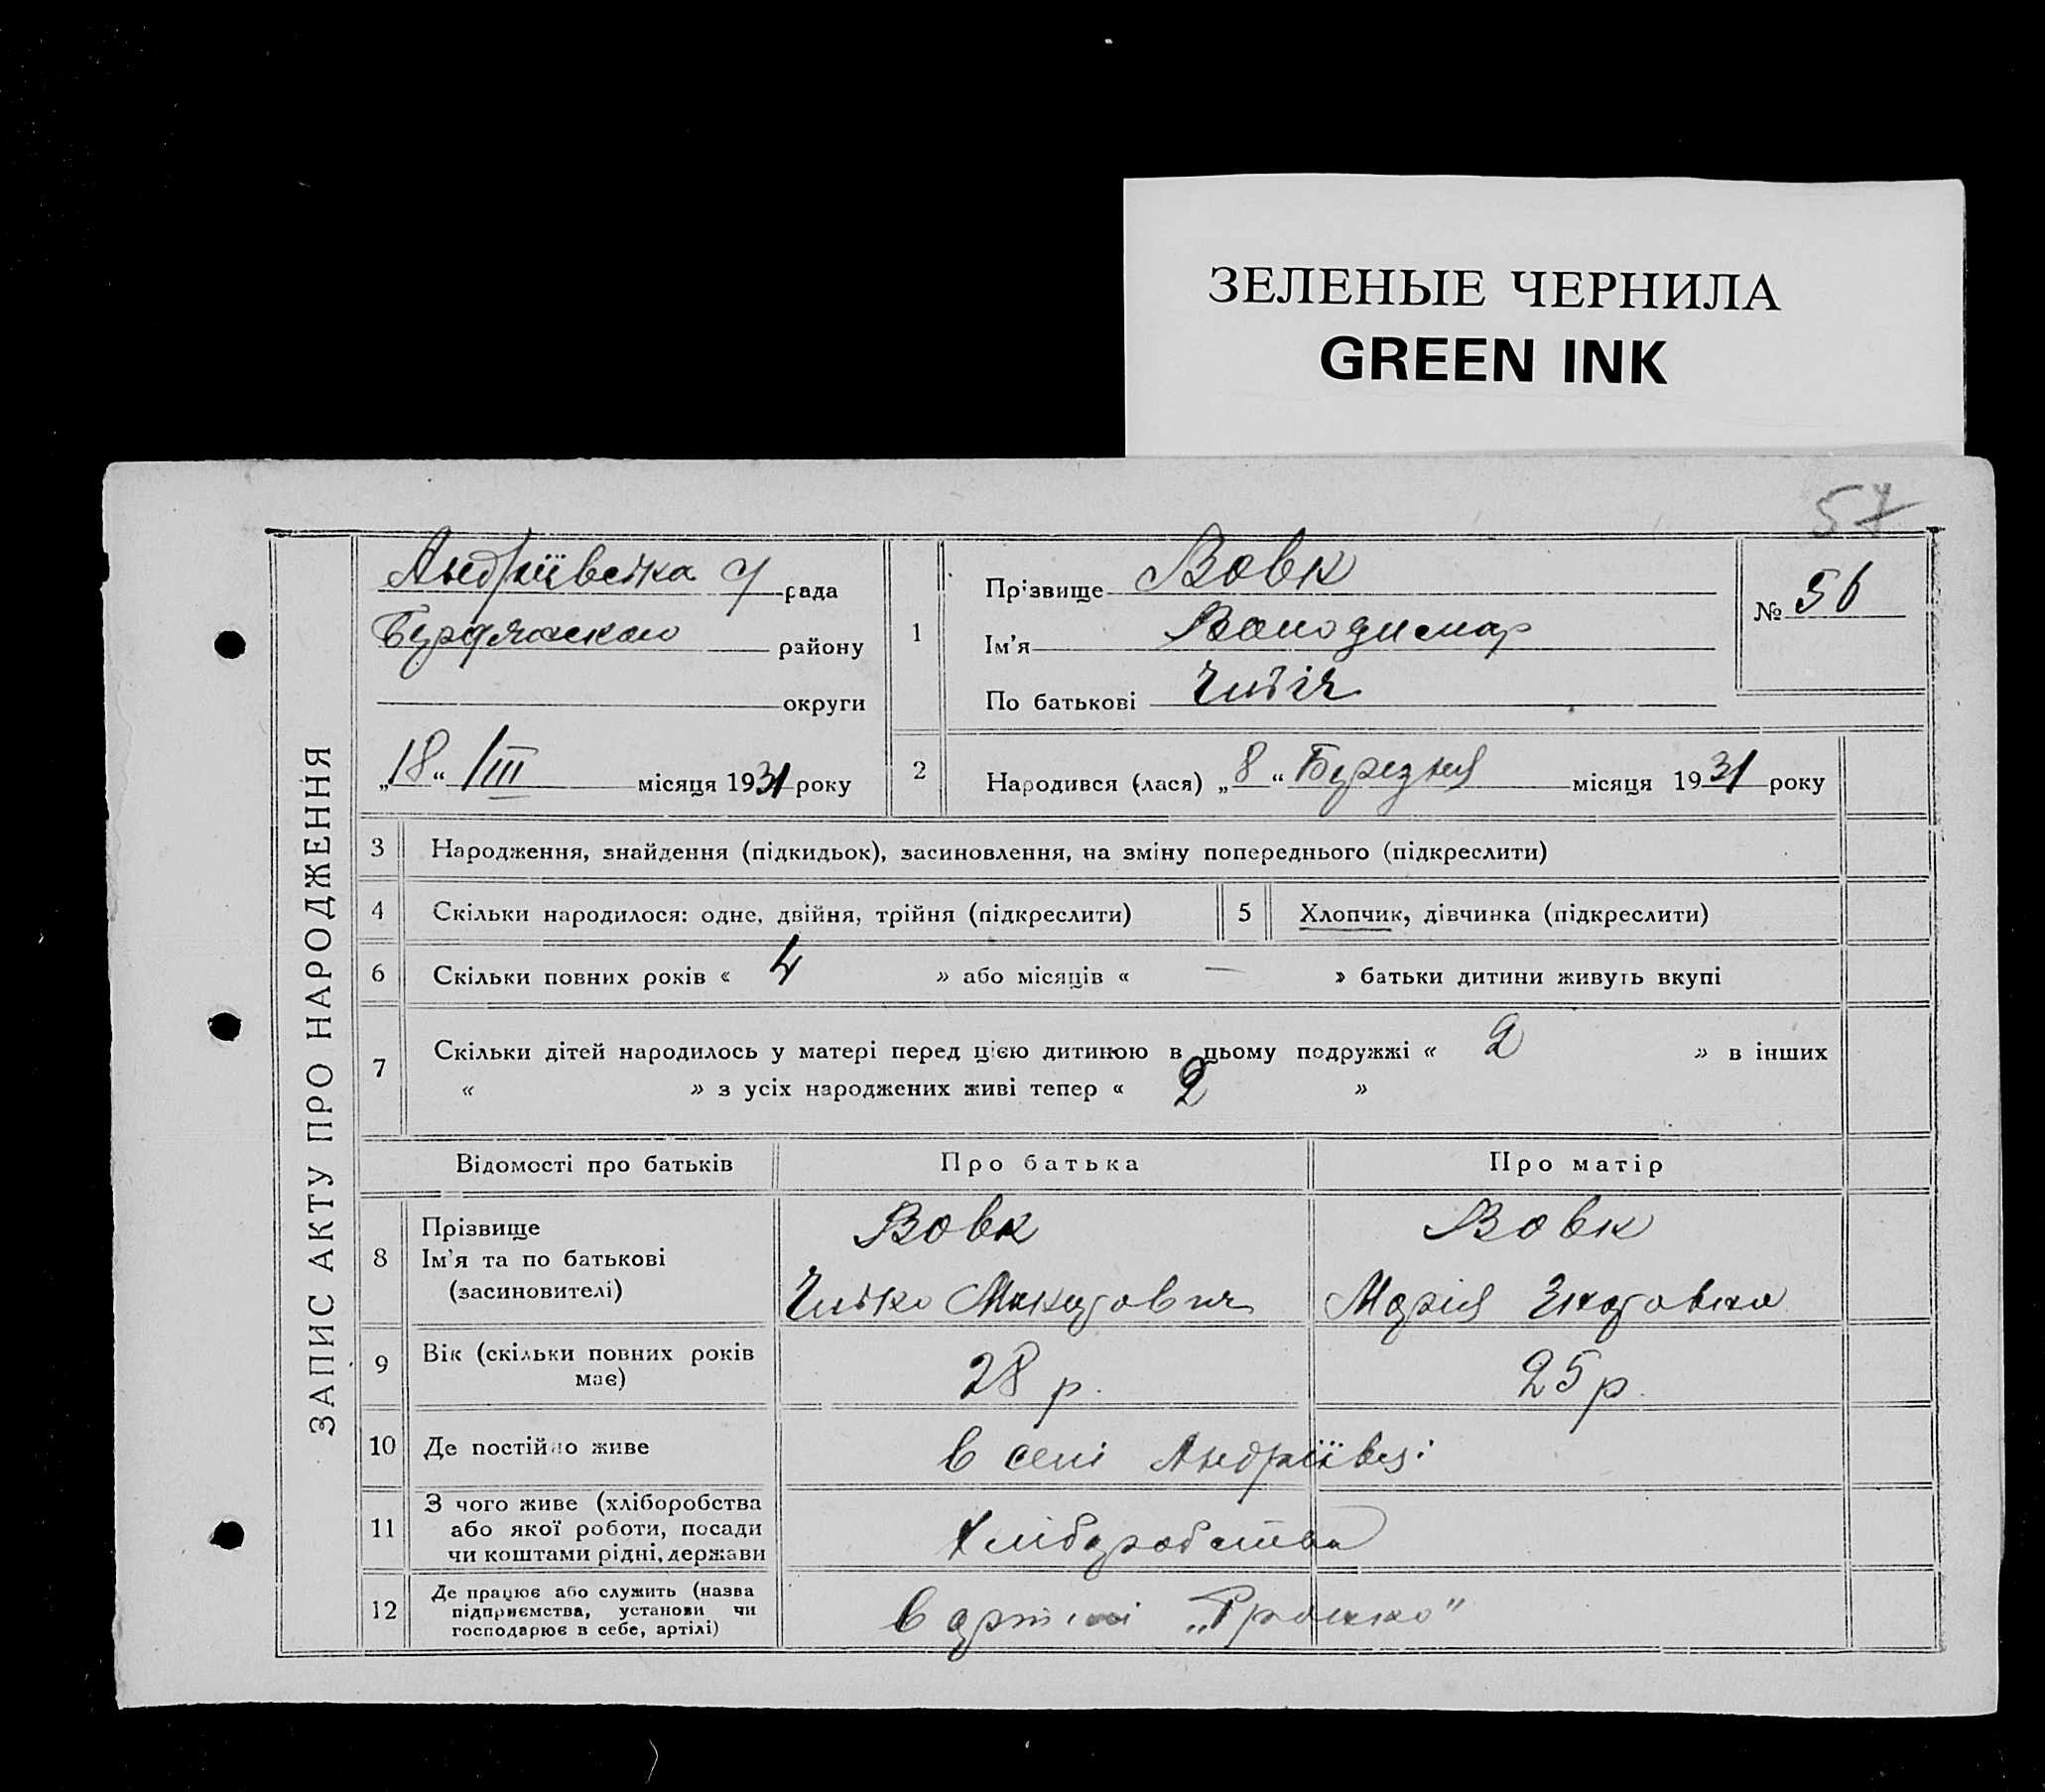 ЗЕЛЕНЫЕ ЧЕРНИЛА
GREEN INK
57
ЗАПИС АКТУ ПРО НАРОДЖЕННЯ
Андріївська с/ рада
району
округи
„18“ /III місяця 1931 року
1
Прізвище Вовк
Ім'я Володимир
По батькові
№ 56
2 Народився (лася) „8“ Березня місяця 1931 року
3 Народження, знайдення (підкидьок), засиновлення, на зміну попереднього (підкреслити)
4 Скільки народилося: одне, двійня, трійня (підкреслити)
5 Хлопчик, дівчинка (підкреслити)
6 Скільки повних років « 4 » або місяців « — » батьки дитини живуть вкупі
7 Скільки дітей народилось у матері перед цією дитиною в цьому подружжі « 2 » в інших
« » з усіх народжених живі тепер « 2 »
Відомості про батьків Про батька Про матір
8 Прізвище Вовк Вовк
Ім'я та по батькові
(засиновителі) Марія
9 Вік (скільки повних років має) 28 р. 25 р.
10 Де постійно живе в селі Андріївці
11 З чого живе (хліборобства
або якої роботи, посади
чи коштами рідні, держави
Хліборобства
12 Де працює або служить (назва
підприємства, установи чи
господарює в себе, артілі)
в артілі